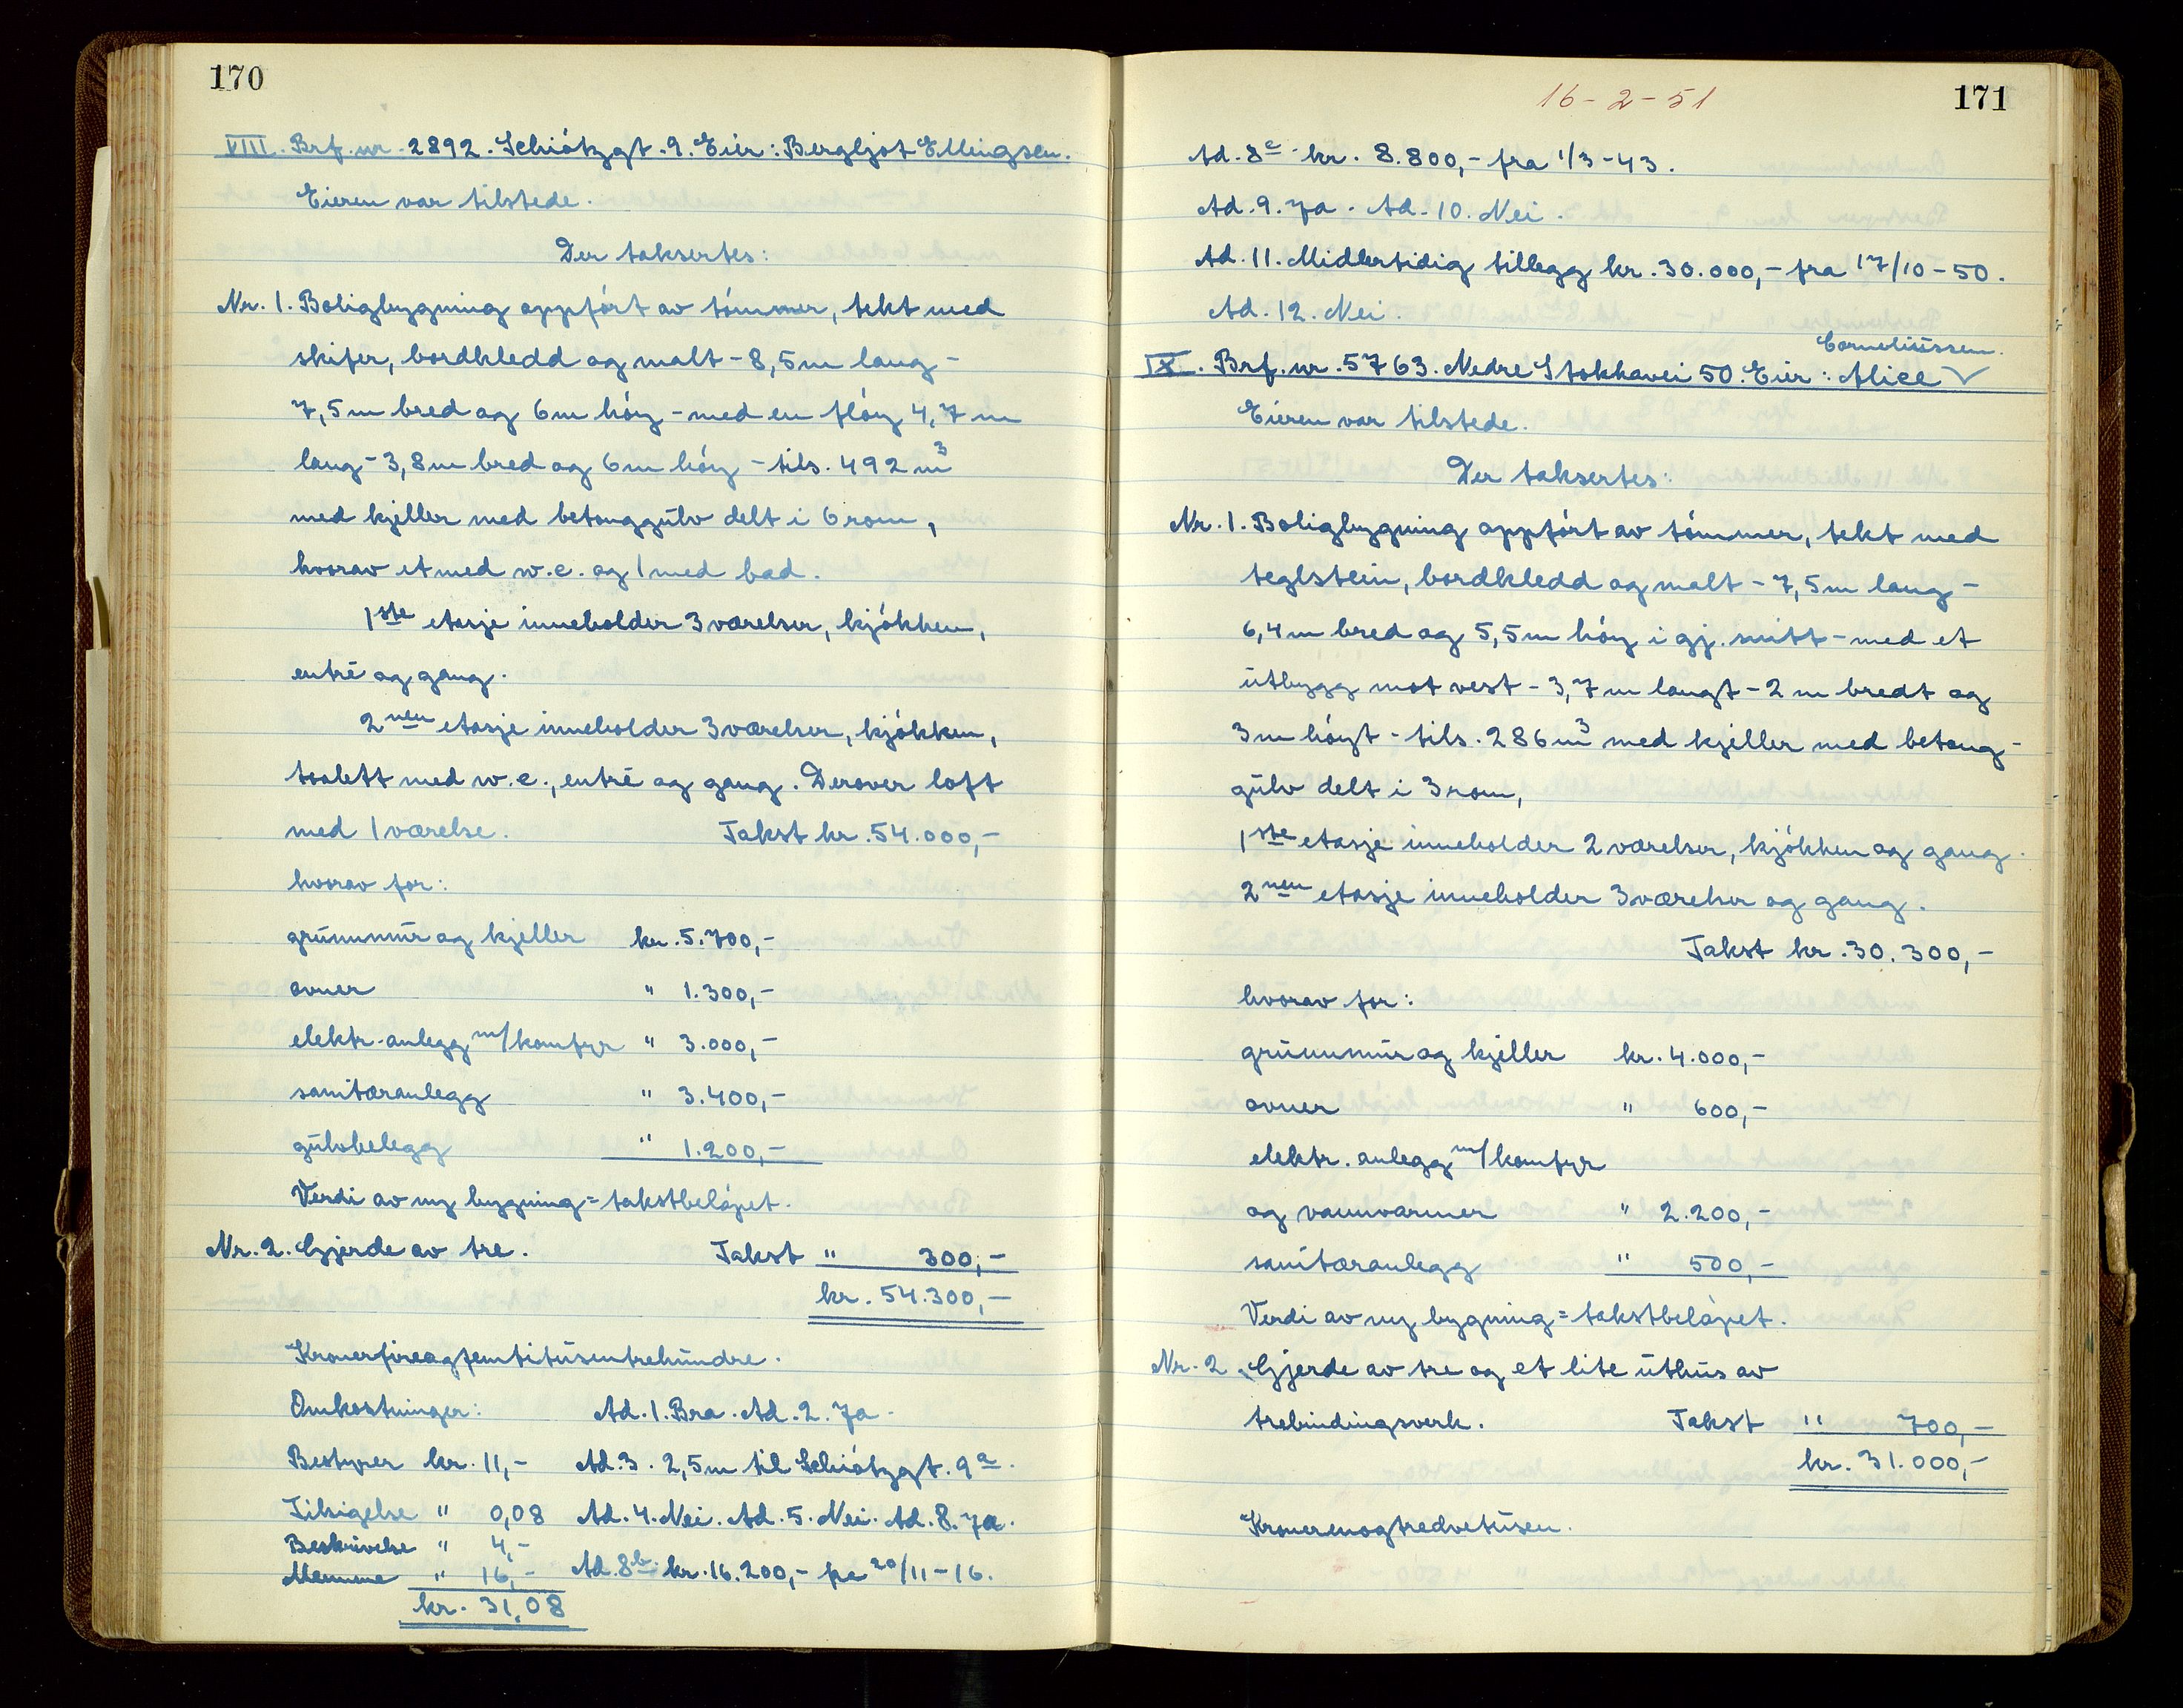 170
VIII. Brf. nr. 2892. Schiótzgt. 9. Eier: Bergljot Ellingsen.
Eieren var tilstede.
Der taksertes:
Nr. 1. Boligbygning oppfórt av tómmer, tekt med
skifer, bordkledd og malt - 8,5 m lang -
7,5 m bred og 6 m hóy - med en flóy 4,7 m
lang - 3,8 m bred og 6 m hóy - tils. 492 m³
med kjeller med betonggulv delt i 6 rom,
hvorav et med w.c. og 1 med bad.
1ste etasje inneholder 3 værelser, kjókken,
entré og gang.
2nen etasje inneholder 3 værelser, kjókken,
toalett med w.c., entré og gang. Derover loft
med 1 værelse. Takst kr. 54.000,-
hvorav for:
grunnmur og kjeller kr. 5.700,-
ovner " 1.300,-
elektr. anlegg m/komfyr " 3.000,-
sanitæranlegg " 3.400,-
gulvbelegg " 1.200,-
Verdi av ny bygning = takstbelópet.
Nr. 2. Gjerde av tre. Takst " 300,-
kr. 54.300,-
Kronerfireogfemtitusentrehundre.
Omkostninger: Ad. 1. Bra. Ad. 2. Ja.
Bestyrer kr. 11,- Ad. 3. 2,5 m til Schiótzgt. 9a.
Tilsigelse " 0,08 Ad. 4. Nei. Ad. 5. Nei. Ad. 8. Ja.
Beskrivelse " 4,-
Mennene " 16,- Ad. 8b. kr. 16.200,- fra 20/11-16.
kr. 31,08
16-2-51
171
Ad. 8c kr. 8.800,- fra 1/3-43.
Ad. 9. Ja. Ad. 10. Nei.
Ad. 11. Midlertidig tillegg kr. 30.000,- fra 17/10-50.
Ad. 12. Nei.
Corneliussen.
IX. Brf. nr. 5763. Nedre Stokkavei 50. Eier: Alice
Eieren var tilstede.
Der taksertes:
Nr. 1. Boligbygning oppfórt av tómmer, tekt med
teglstein, bordkledd og malt - 7,5 m lang -
6,4 m bred og 5,5 m hóy i gj. snitt - med et
utbygg mot vest - 3,7 m langt - 2 m bredt og
3 m hóyt - tils. 286 m³ med kjeller med betong-
gulv delt i 3 rom,
1ste etasje inneholder 2 værelser, kjókken og gang.
2nen etasje inneholder 3 værelser og gang.
Takst kr. 30.300,-
hvorav for:
grunnmur og kjeller kr. 4.000,-
ovner " 600,-
elektr. anlegg m/komfyr
og vannvarmer " 2.200,-
sanitæranlegg " 500,-
Verdi av ny bygning = takstbelópet.
Nr. 2. Gjerde av tre og et lite uthus av
trebindingsverk. Takst " 700,-
kr. 31.000,-
Kronerenogtredvetusen.